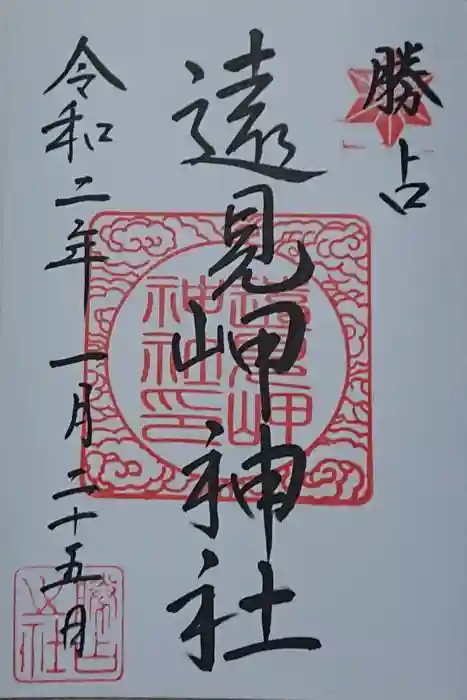 勝占
遠見岬神社
令和二年 一月二十五日
遠見岬
神社印